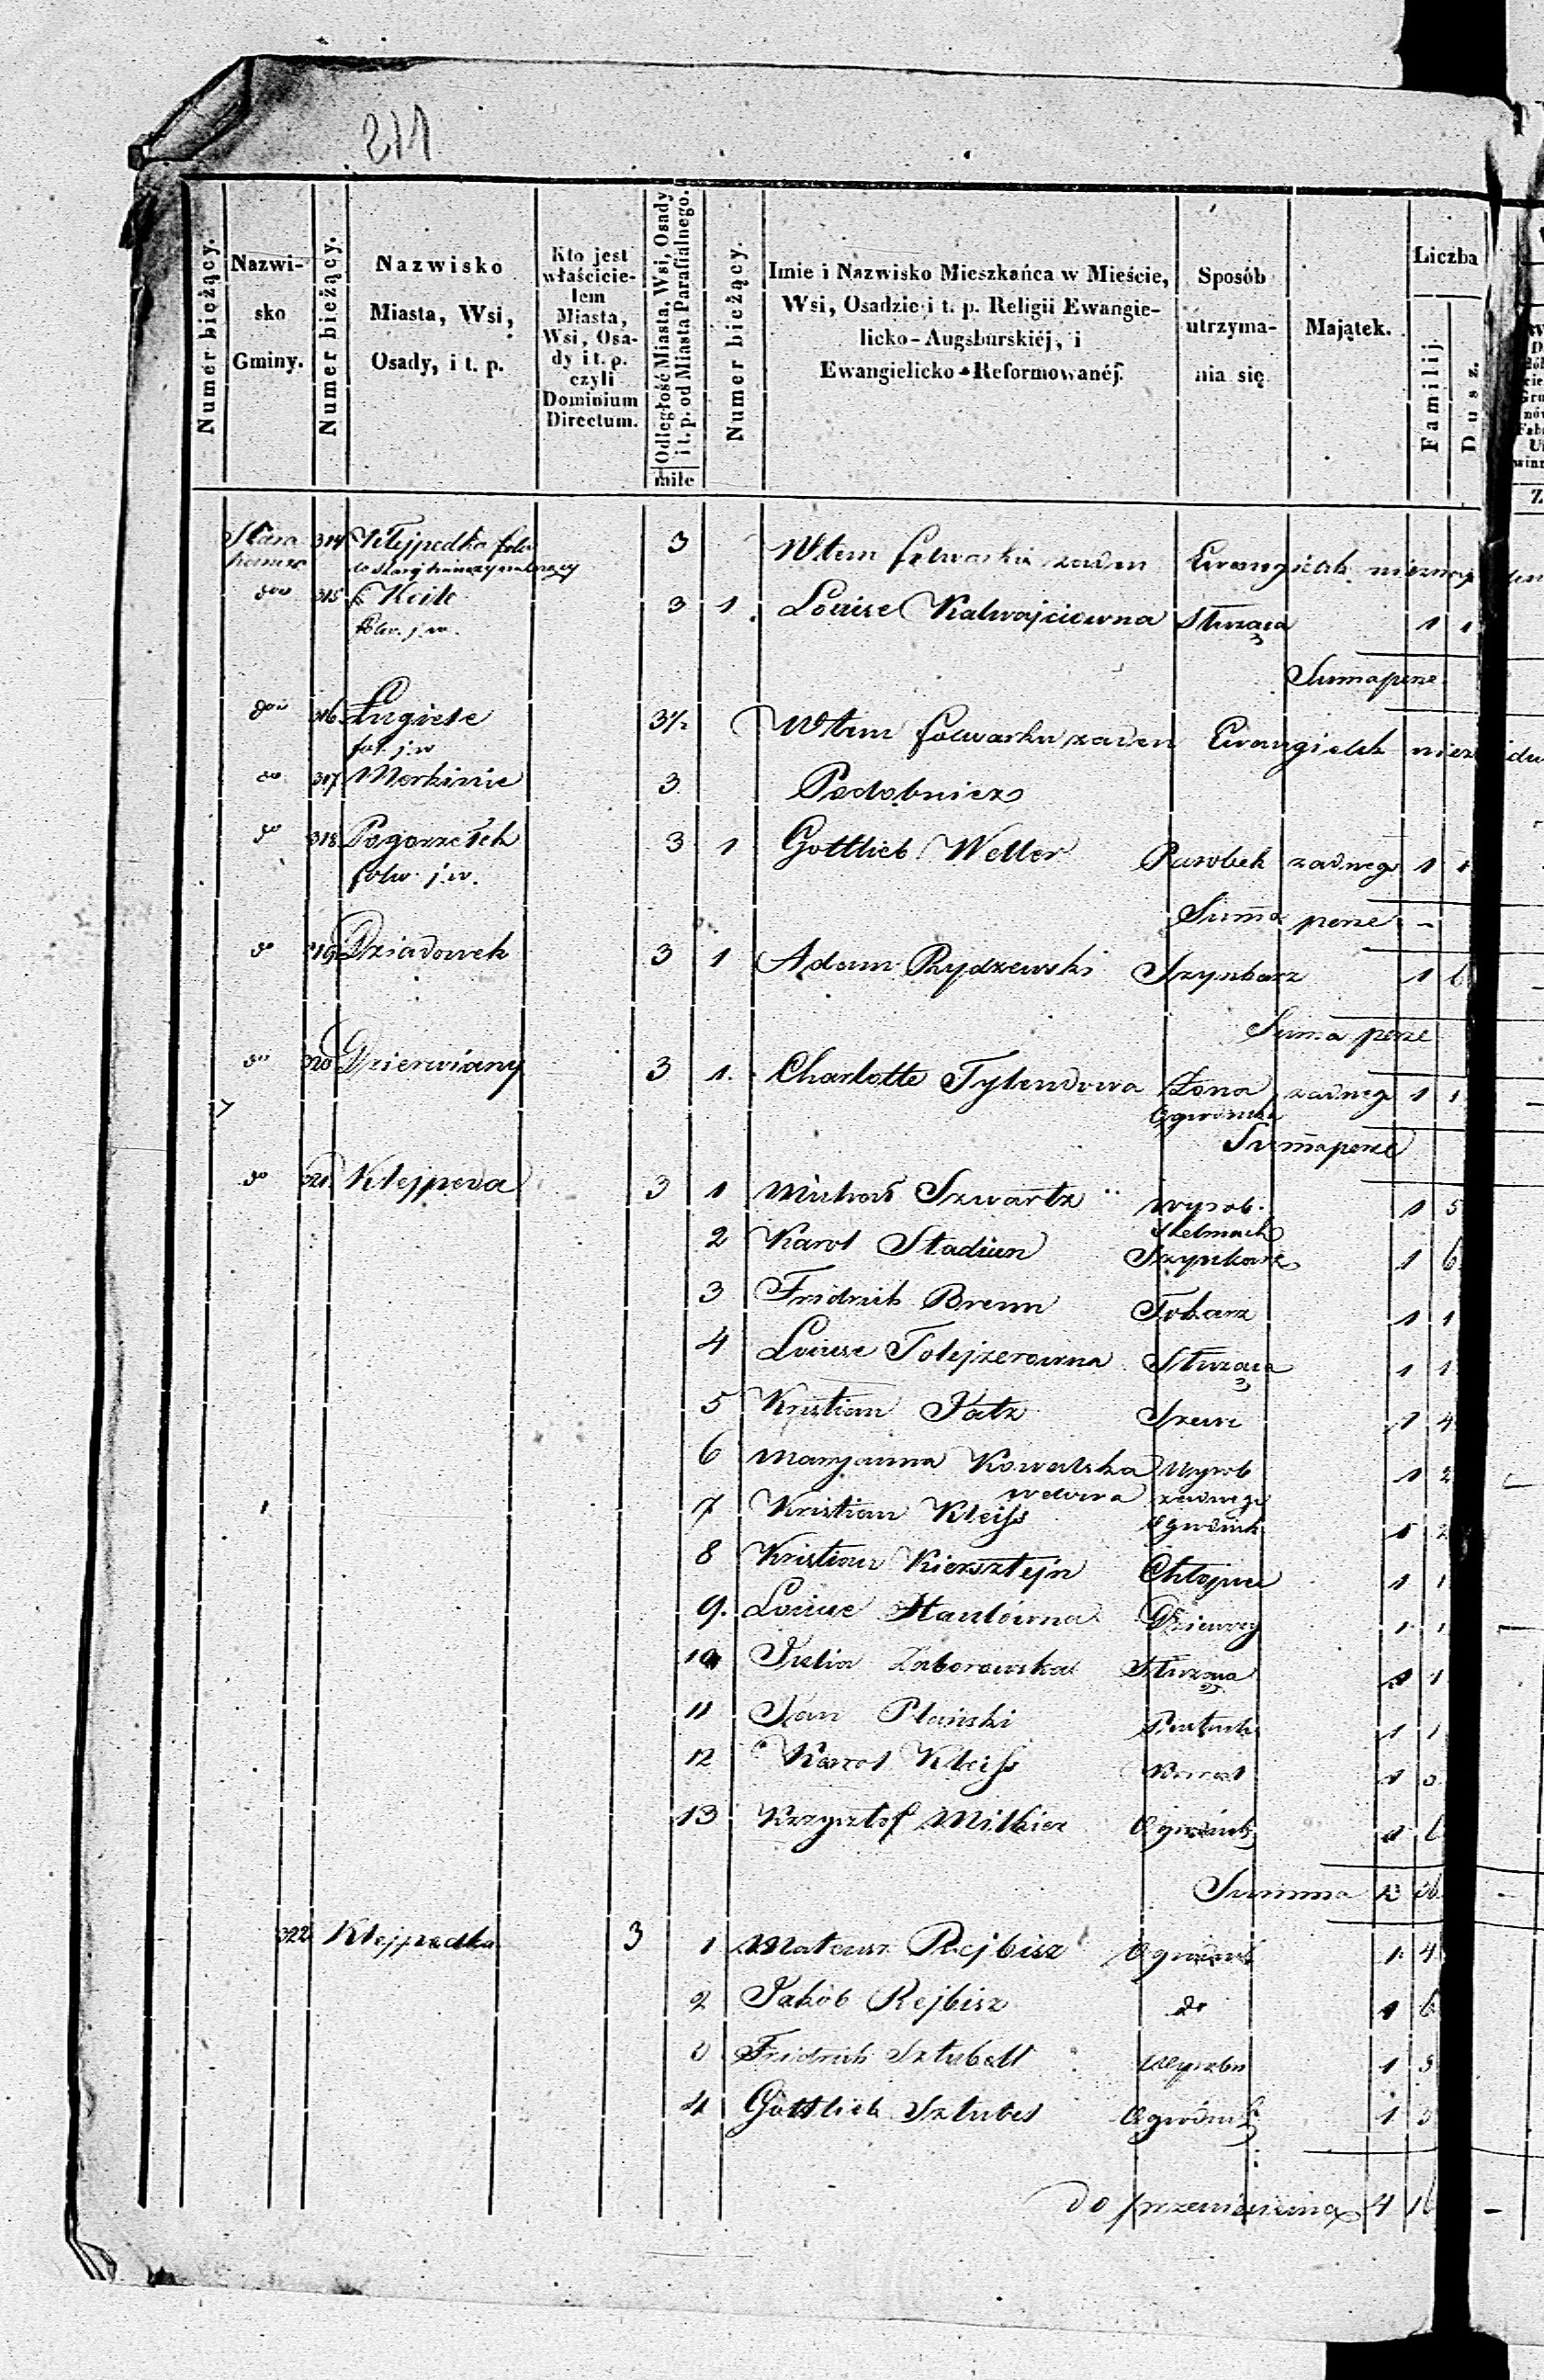 211
Numer bieżący.
Nazwi-
sko
Gminy.
Numer bieżący.
Nazwisko
Miasta, Wsi,
Osady, i t. p.
Kto jest
właścicie-
lem
Miasta,
Wsi, Osa-
dy i t. p.
czyli
Dominium
Directum.
Odległość Miasta, Wsi, Osady
i t. p. od Miasta Parafialnego.
mile
Numer bieżący.
Imie i Nazwisko Mieszkańca w Mieście,
Wsi, Osadzie i t. p. Religii Ewangie-
licko-Augsburskiéj, i
Ewangielicko-Reformowanéj.
Sposób
utrzyma-
nia się
Majątek.
Liczba
Familij.
Dusz.
Stara 314 Kłejpedka folw 3 W tem folwarku żaden Ewangielik
do Starej należący
315 Keile 3 1. Louise Kalwajciowna Służąca 1 1
folw. j. w.
Suma perse
316 Ługiele 3½ W tem folwarku żaden Ewangielik
fol. j. w
do 317 Merkinie 3 Podobnież
do 318 Pogorzelek 3 1 Gottlieb Weller Parobek żadnego 1 1
folw. j. w.
Suma perse
do 319 Dziadowek 3 1 Adam Rydzewski Szynkarz 1 6
Suma perse
do 320 Dzierwiany 3 1. Charlotte Tylendowa Żona żadneg 1 1
Ogrodnika
Suma perse
do 321 Kłejpeda 3 1 Michał Szwartz wyrob. 1 5
Stelmach
2 Karol Stadiun Szynkarz 1 6
3 Fridrich Bremm Tokarz 1 1
4 Louise Tolejzerowna Służąca 1 1
5 Kristian Katz Szewc 1 4
6 Maryanna Kowalska Wyrob 1 2
wdowa żadnego
7 Kristian Kleiss Ogrodnik 1 2
8 Kristian Kiersztejn Chłopiec 1 1
9. Louise Hautówna 1 1
10 Julia Zaborowska Służąca 1 1
11 Jan Plaiński 1 1
12 Karol Kleiss Kowal 1
13 Krzysztof Milkier Ogrodnik 1 6
Summa 13
322 Klejpedka 3 1 Mateusz Rejbisz Ogrodnik 1 4
2 Jakób Rejbisz do 1 6
3 Fridrich Sztubell Wyrobn 1 3
4 Gottlieb Sztubel Ogrodnik 1 3
do przeniesienia 4 16